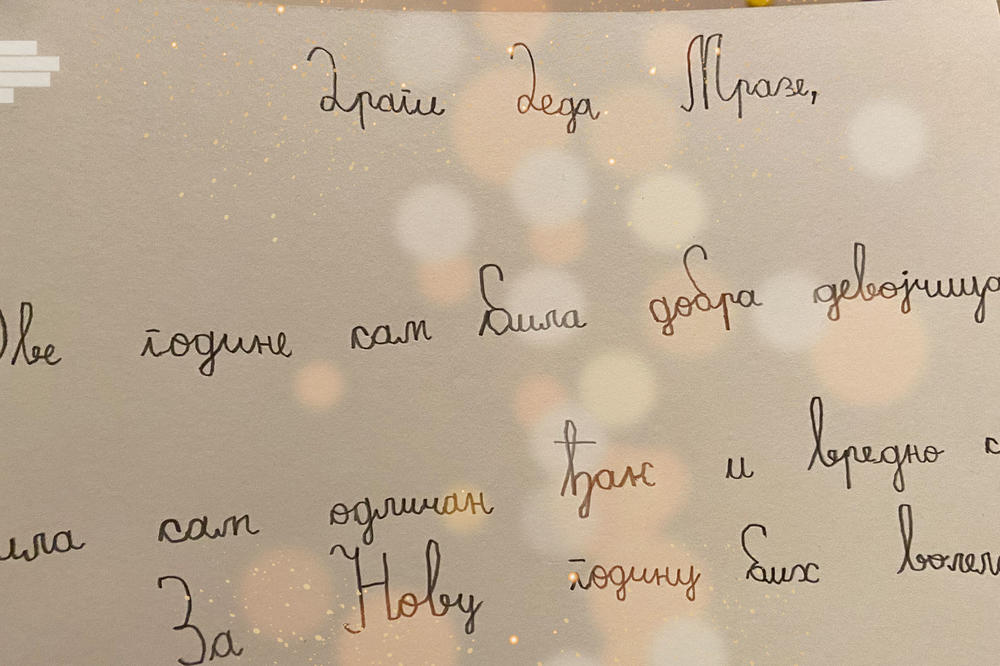 Драги Деда Мразе,
Ове године сам била добра девојчица
ила сам одличан ђак и вредно с
За Нову годину бих волел